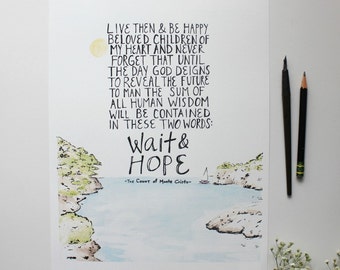 LIVE THEN & BE HAPPY
BELOVED CHILDREN OF
MY HEART AND NEVER
FORGET THAT UNTIL
THE DAY GOD DEIGNS
TO REVEAL THE FUTURE
TO MAN THE SUM OF
ALL HUMAN WISDOM
WILL BE CONTAINED
IN THESE TWO WORDS:
Wait &
HOPE
-The Count of Monte Cristo-